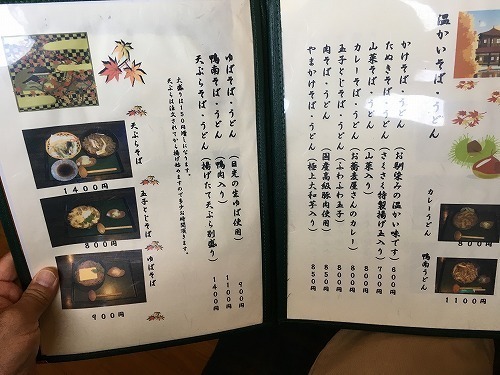 温かいそば・うどん
かけそば・うどん (お馴染みの温かい味です) 600円
たぬきそば・うどん (さくさく特製揚げ玉入り) 700円
山菜そば・うどん (山菜入り) 800円
カレーそば・うどん (お蕎麦屋さんのカレー) 800円
玉子とじそば・うどん (ふわふわ玉子) 800円
肉そば・うどん (国産高級豚肉使用) 850円
やまかけそば・うどん (極上大和芋入り) 850円
カレーうどん
800円
鴨南うどん
1100円
ゆばそば・うどん (日光の生ゆば使用) 900円
鴨南そば・うどん (鴨肉入り) 1100円
天ぷらそば・うどん (揚げたて天ぷら別盛り) 1400円
大盛りは150円増しになります。
天ぷらは注文されてから揚げ始めますので多少お時間頂きます。
天ぷらそば
1400円
玉子とじそば
800円
ゆばそば
900円